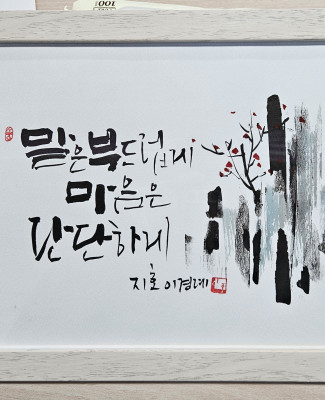 말은부드럽게
마음은
단단하게
지호 이경례
100